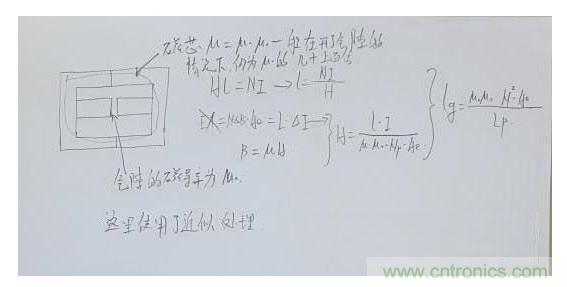 磁芯 μ = μr·μ0 一般在开了气隙的
情况下, 仍为μ0的几十上百倍
Hl = NI → l = NI/H
= NΔB·Ae = L·ΔI →
B = μH
H = L·I/(μr·μ0·Np·Ae)
lg = μr·μ0·N²·Ae/Lp
气隙的磁导率为 μ0.
这里使用了近似处理
www.cntronics.com